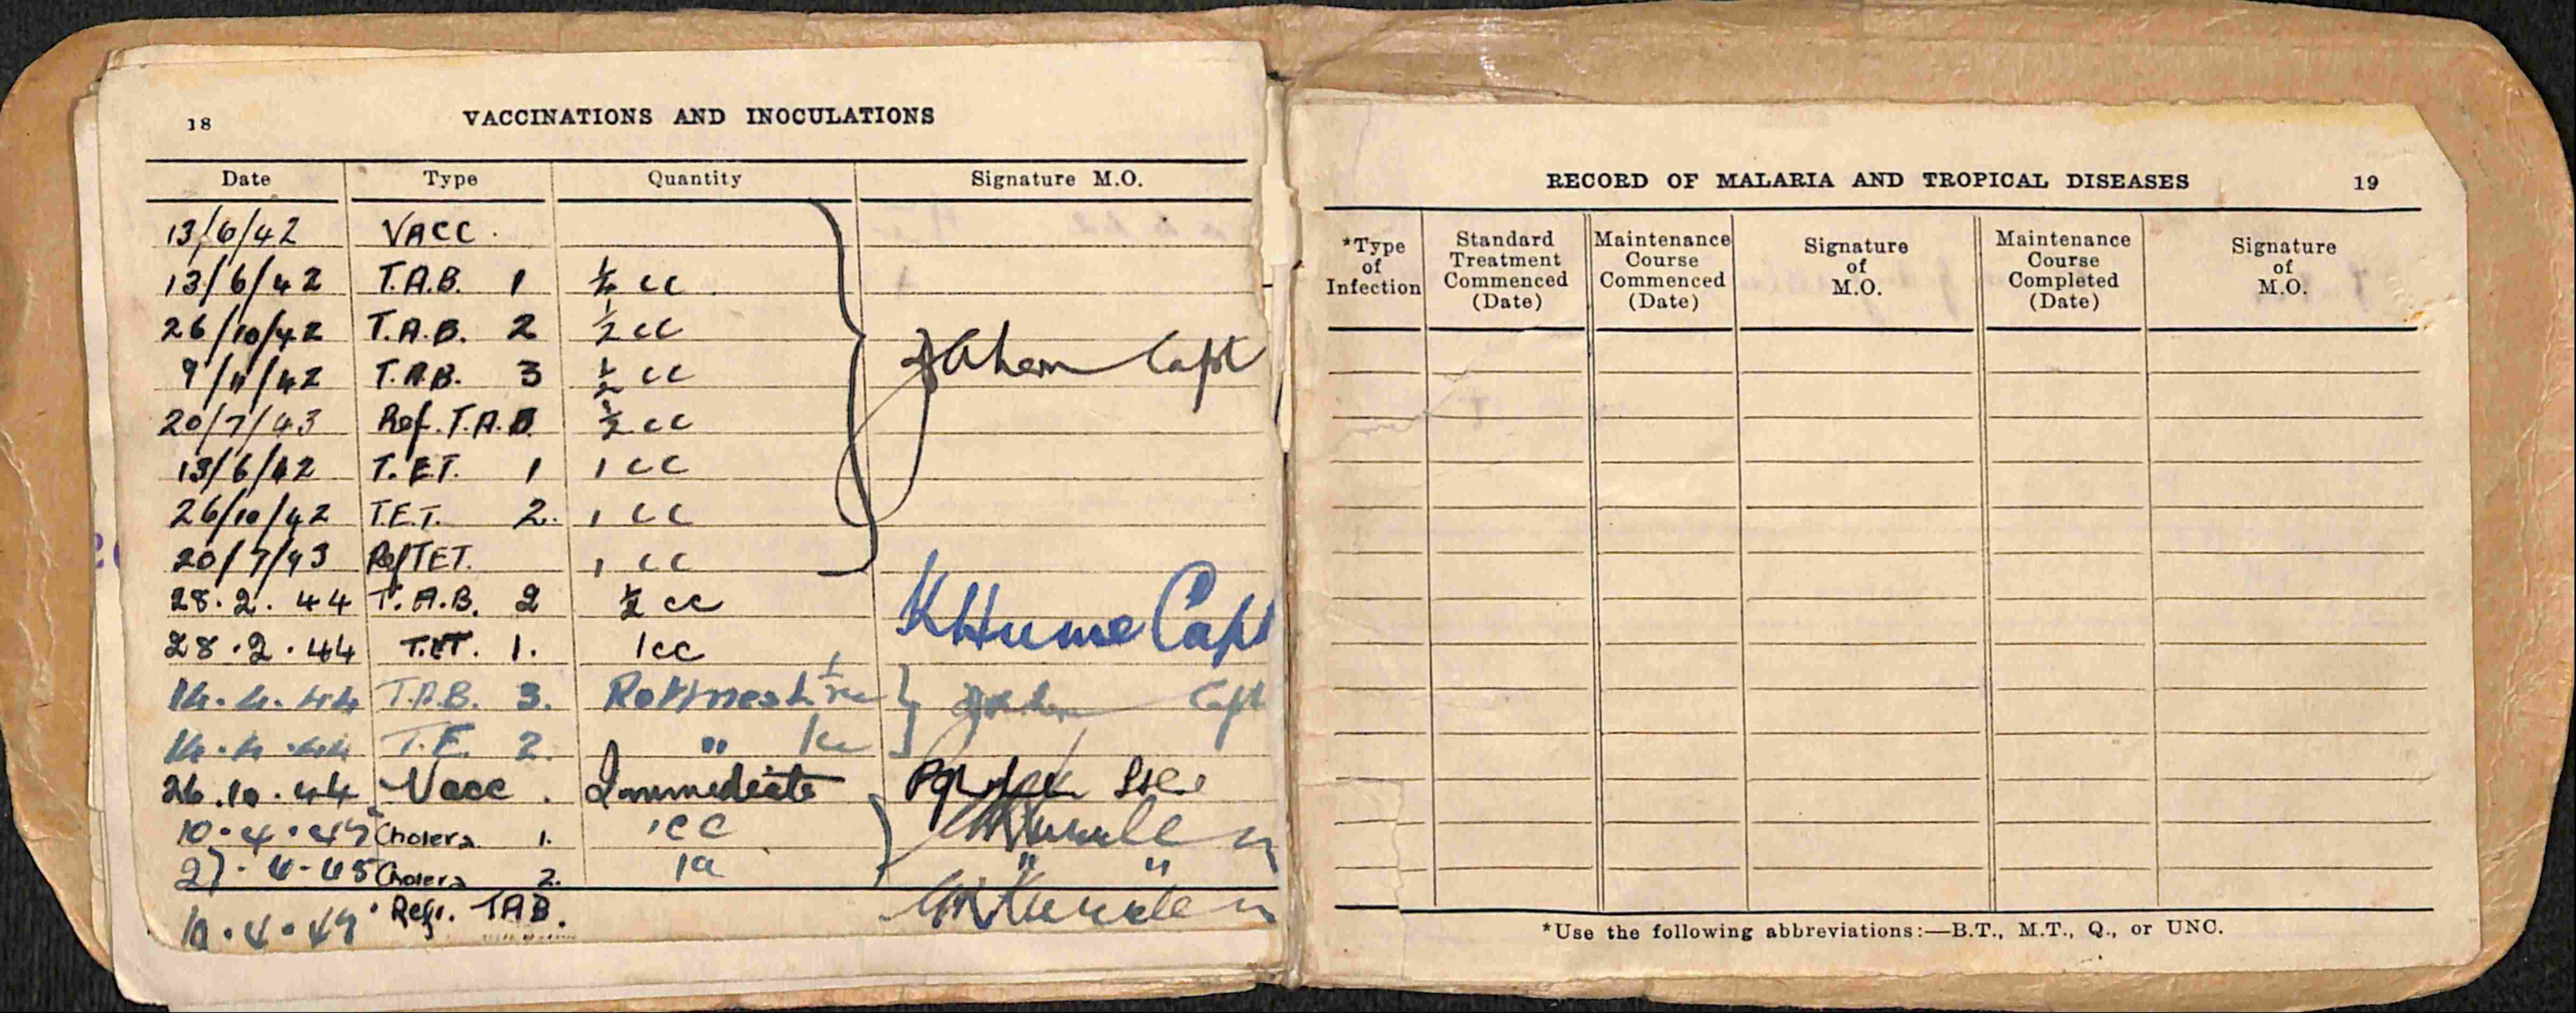 18
VACCINATIONS AND INOCULATIONS
Date Type Quantity Signature M.O.
13/6/42 VACC.
13/6/42 T.A.B. 1 ½ cc
26/10/42 T.A.B. 2 ½ cc
9/11/42 T.A.B. 3 ½ cc Capt
20/7/43 Ref. T.A.B. ½ cc
13/6/42 T.ET. 1 1 cc
26/10/42 T.E.T. 2. 1 cc
20/7/43 Ref TET. 1 cc
28.2.44 T.A.B. 2 ½ cc K Hume Capt
28.2.44 T.ET. 1. 1cc
14.4.44 T.A.B. 3. Rottnest ½cc Capt
14.4.44 T.E. 2. " 1cc
26.10.44 Vacc. Immediate
10.4.45 Cholera 1. 1cc
27.4.45 Cholera 2. 1cc " "
10.4.45 Refr. TAB.
RECORD OF MALARIA AND TROPICAL DISEASES 19
*Type of Infection
Standard Treatment Commenced (Date)
Maintenance Course Commenced (Date)
Signature of M.O.
Maintenance Course Completed (Date)
Signature of M.O.
*Use the following abbreviations:—B.T., M.T., Q., or UNC.